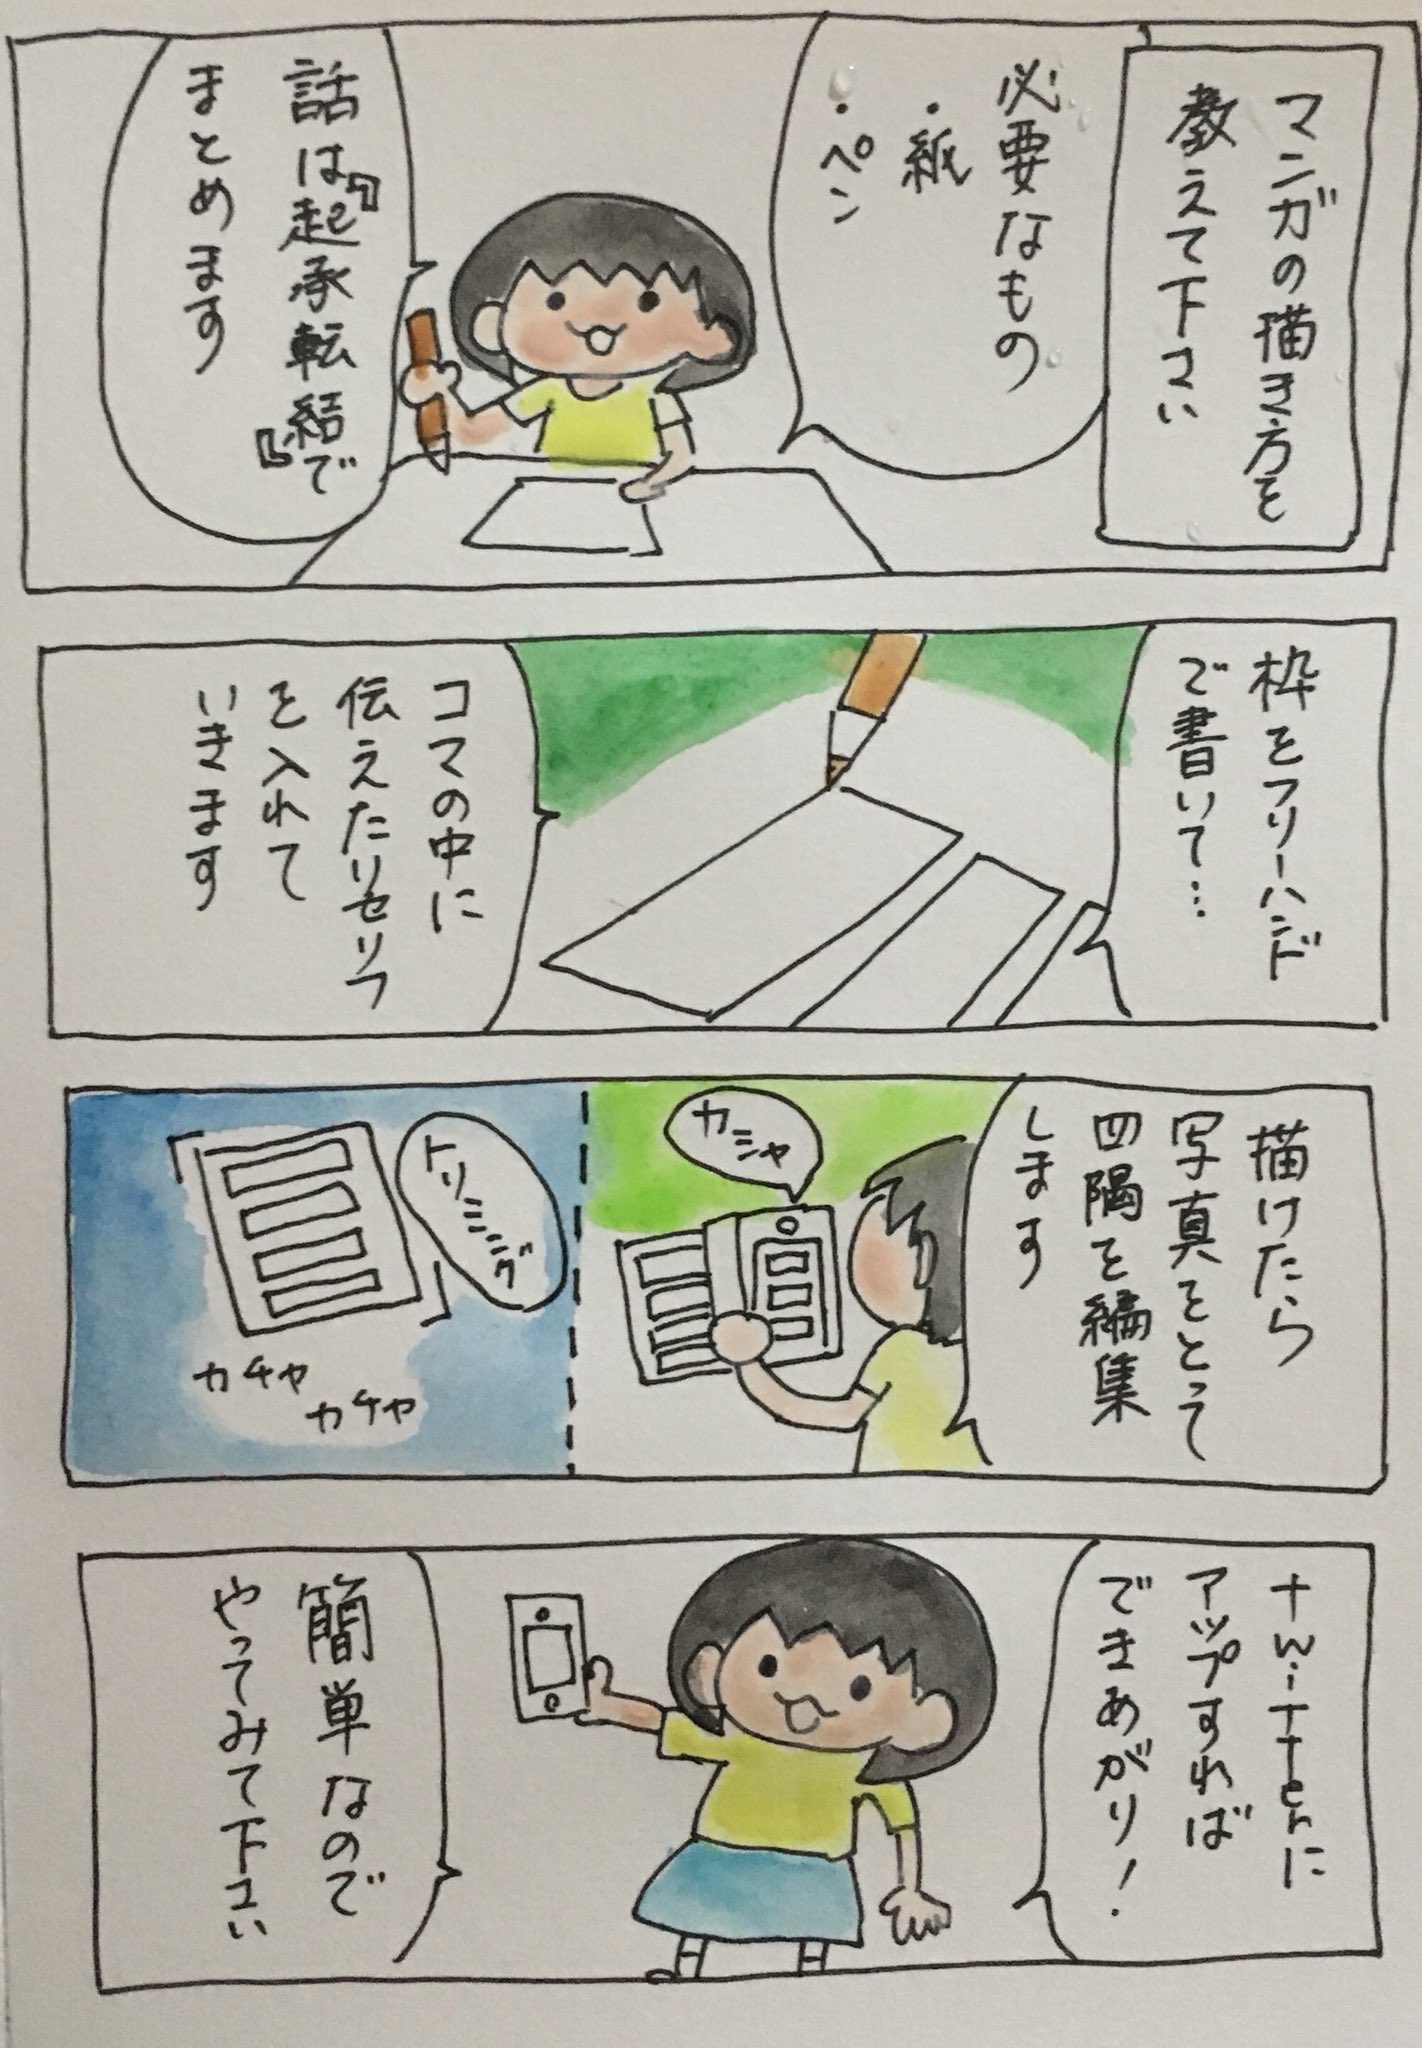 マンガの描き方を
教えて下さい
必要なもの
・紙
・ペン
話は『起承転結で
』
まとめます
枠をフリーハンド
で書いて…
コマの中に
伝えたりセリフ
を入れて
いきます
描けたら
写真をとって
四隅を編集
します
カシャ
トリミング
カチャ
カチャ
twitterに
アップすれば
できあがり!
簡単なので
やってみて下さい